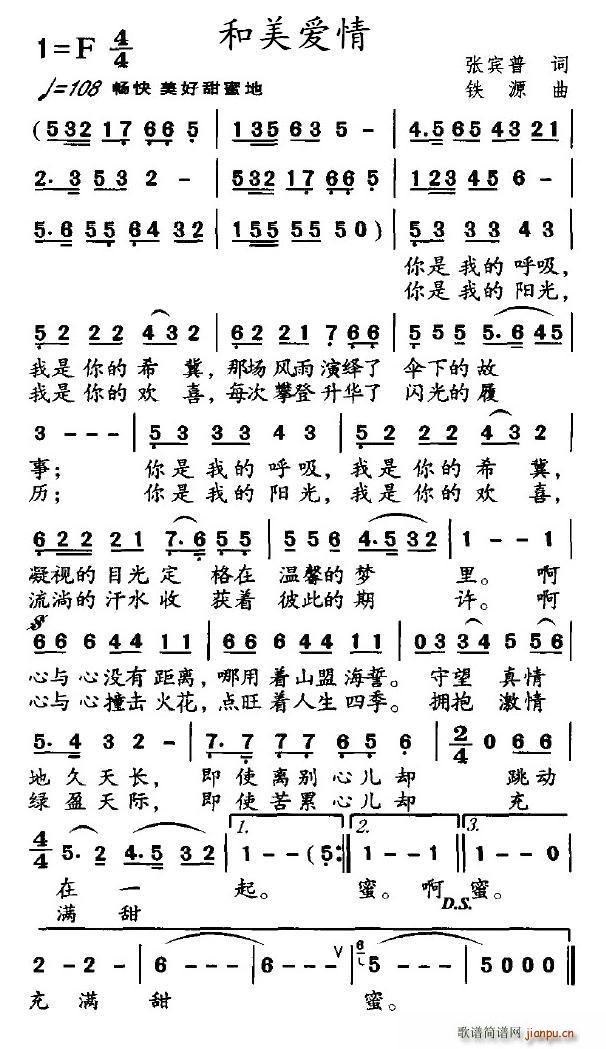 和美爱情
1=F 4/4
张宾普 词
♩=108 畅快 美好甜蜜地
铁源 曲
(532 17 66 5 | 135 63 5 - | 4.5 65 43 21 |
2. 3 5 3 2 - | 532 17 66 5 | 123 45 6 - |
5. 6 55 64 32 | 155 55 50) | 5 3 33 4 3 |
你是我的呼吸,
你是我的阳光,
5 2 22 432 | 62 21 7 66 | 55 5 5.645 |
我是你的希冀,那场风雨演绎了 伞下的故
我是你的欢喜,每次攀登升华了 闪光的履
3 - - - | 5 3 33 4 3 | 5 2 22 432 |
事; 你是我的呼吸,我是你的希冀,
历; 你是我的阳光,我是你的欢喜,
622 21 7.6 55 | 556 4.532 | 1 - - 1 |
凝视的目光定 格在 温馨的梦 里。啊
流淌的汗水收 获着 彼此的期 许。啊
66 6 44 11 | 556 6 44 11 | 0334 5 56 |
心与心没有距离,哪用着山盟海誓。守望 真情
心与心撞击火花,点旺着人生四季。拥抱 激情
5. 4 3 2 - | 7. 7 77 65 6 | 2/4 0 66 |
地久天长, 即使离别心儿却 跳动
绿盈天际, 即使苦累心儿却 充
4/4 5. 2 4.5 32 | 1. 1 - - (5 :‖ 2. 1 - - 1 ‖ 3. 1 - - 0 |
在 一 起。 蜜。啊 蜜。
满 甜 D.S.
2 - 2 - | 6 - - - | 6 - - - ∨ | 5 - - - | 5000 ‖
充 满 甜 蜜。
歌谱简谱网 jianpu.cn